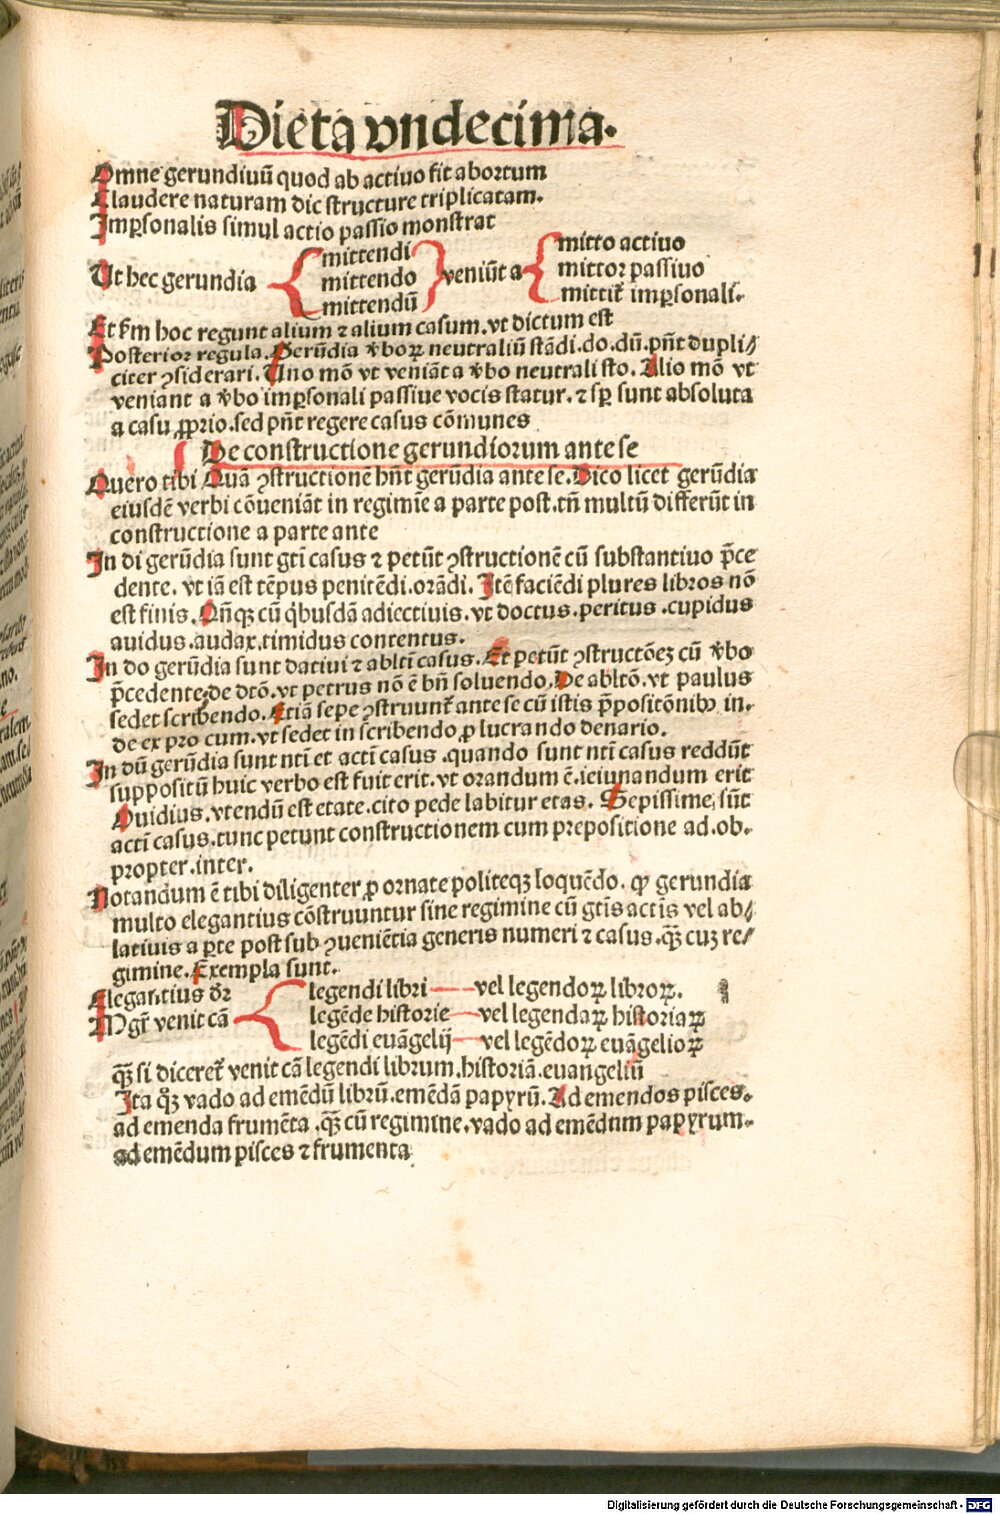 Dieta vndecima.
Omne gerundiuū quod ab actiuo fit abortum
Claudere naturam dic structure triplicatam.
Imꝑsonalis simul actio passio monstrat
Ut hec gerundia mittendi mittendo mittendū veniūt a mitto actiuo mittor passiuo mittit᷑ imꝑsonali.
Et ẜm hoc regunt alium ⁊ alium casum. vt dictum est
Posterior regula. Gerūdia v̄boꝝ neutraliū stādi. do. dū. pn̄t dupli/
citer ꝯsiderari. Uno mō vt veniāt a v̄bo neutrali sto. Alio mō vt
veniant a v̄bo imꝑsonali passiue vocis statur. ⁊ sꝑ sunt absoluta
a casu ꝓprio. sed pn̄t regere casus cōmunes
De constructione gerundiorum ante se
Quero tibi Quā ꝯstructionē hn̄t gerūdia ante se. Dico licet gerūdia
eiusdē verbi cōueniāt in regimīe a parte post. tn̄ multū differūt in
constructione a parte ante
In di gerūdia sunt gt̄i casus ⁊ petūt ꝯstructionē cū substantiuo p̄ce
dente. vt iā est tēpus penitēdi. orādi. Itē faciēdi plures libros nō
est finis. Qn̄qꝫ cū q̇busdā adiectiuis. vt doctus. peritus. cupidus
auidus. audax. timidus contentus.
In do gerūdia sunt datiui ⁊ ablt̄i casus. Et petūt ꝯstructōeꝫ cū v̄bo
p̄cedente. de dtō. vt petrus nō ē bn̄ soluendo. De abltō. vt paulus
sedet scribendo. Etiā sepe ꝯstruunt᷑ ante se cū istis p̄positōnibꝰ in.
de ex pro cum. vt sedet in scribendo ꝓ lucrando denario.
In dū gerūdia sunt nt̄i et act̄i casus. quando sunt nt̄i casus reddūt
suppositū huic verbo est fuit erit. vt orandum ē. ieiunandum erit
Ouidius. vtendū est etate. cito pede labitur etas. Sepissime sūt
act̄i casus. tunc petunt constructionem cum prepositione ad. ob.
propter. inter.
Notandum ē tibi diligenter ꝓ ornate politeqꝫ loquēdo. ꝙ gerundia
multo elegantius cōstruuntur sine regimine cū gt̄is act̄is vel ab/
latiuis a ꝑte post sub ꝯueniētia generis numeri ⁊ casus. qꝫ̄ cuꝫ re/
gimine. Exempla sunt.
Elegantius dr̄ legendi libri vel legendoꝝ libroꝝ.
Mgr̄ venit cā legēde historie vel legendaꝝ historiaꝝ
legēdi euāgelij vel legēdoꝝ euāgelioꝝ
qꝫ̄ si diceret᷑ venit cā legendi librum. historiā. euangeliū
Ita qͦꝫ vado ad emēdū librū. emēdā papyrū. Ad emendos pisces.
ad emenda frumēta. qꝫ̄ cū regimine. vado ad emēdum papyrum.
ad emēdum pisces ⁊ frumenta
Digitalisierung gefördert durch die Deutsche Forschungsgemeinschaft - DFG